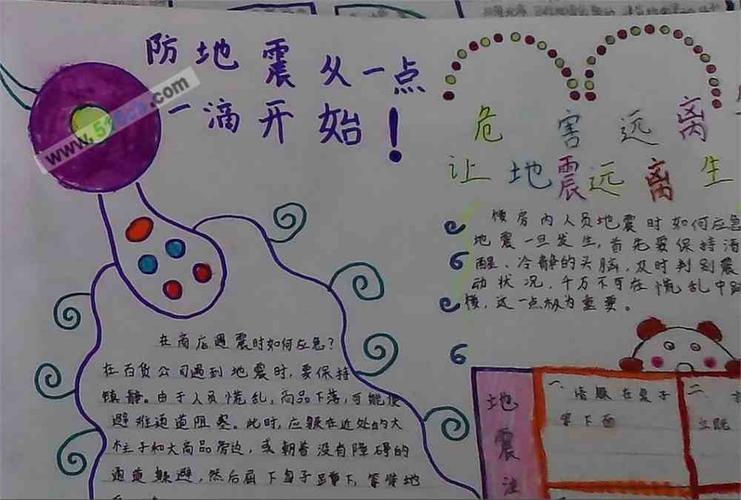 防地震从一点
一滴开始！
www.5
.com
危害远离
让地震远离生
楼房内人员地震时如何应急
地震一旦发生，首先要保持清
醒、冷静的头脑，及时判别震
动状况，千万不可在慌乱中跳
楼，这一点极为重要。
在商店遇震时如何应急？
在百货公司遇到地震时，要保持
镇静。由于人员慌乱，商品下落，可能使
避难通道阻塞。此时，应躲在近处的大
柱子和大商品旁边，或朝着没有障碍的
通道躲避，然后屈下身子蹲下，等待地
地震注
一、请躲在桌子
等下面
二、